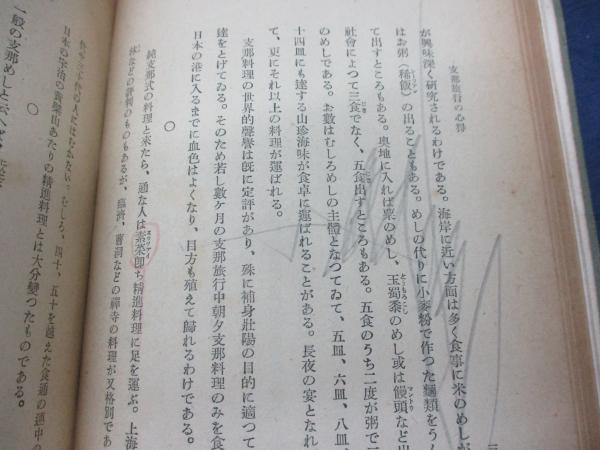 支那旅行の心得
が興味深く研究されるわけである。海岸に近い方面は多く食事に米のめしが
はお粥(稀飯)の出ることもある。めしの代りに小麥粉で作つた麵類をうん
て出すところもある。奥地に入れば粟のめし、玉蜀黍のめし或は饅頭など出
社會によつて三食でなく、五食出すところもある。五食のうち二度が粥で三
のめしである。お數はむしろめしの主體となつてゐて、五皿、六皿、八皿、
十四皿にも達する山珍海味が食卓に運ばれることがある。長夜の宴となれ
て、更にそれ以上の料理が運ばれる。
支那料理の世界的聲譽は既に定評があり、殊に補身壯陽の目的に適つて
達をとげてゐる。そのため若し數ケ月の支那旅行中朝夕支那料理のみを食
日本の港に入るまでに血色はよくなり、目方も殖えて歸れるわけである。
○
純支那式の料理と來たら、通な人は素菜卽ち精進料理に足を運ぶ。上海
林などの評判のものもあるが、臨濟、曹洞などの禪寺の料理が又格別であ
むしろ、四十、五十を越えた食通の連中の
日本の宇治の黄檗山あたりの精進料理とは大分變つたものである。
○
一般の支那めしと云へば